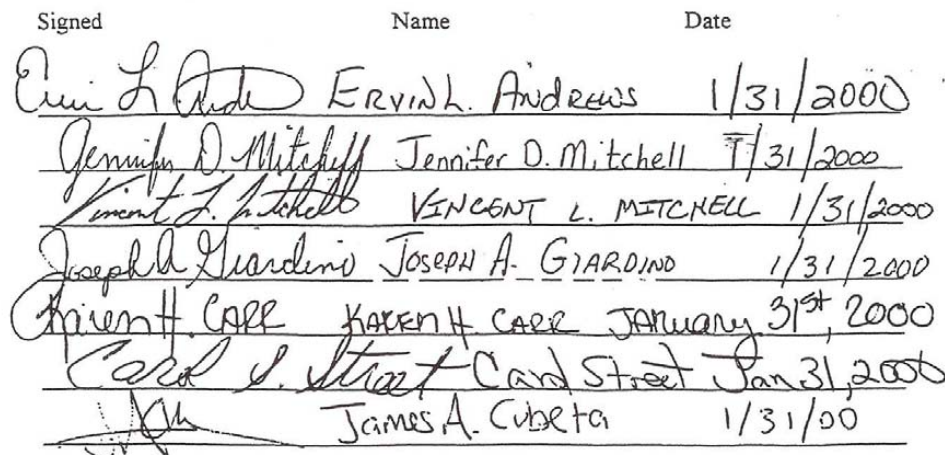 Signed Name Date
ERVIN L. ANDREWS 1/31/2000
Jennifer D. Mitchell Jennifer D. Mitchell 1/31/2000
Vincent L. Mitchell VINCENT L. MITCHELL 1/31/2000
Joseph A Giardino JOSEPH A. GIARDINO 1/31/2000
Karen H. CARR KAREN H CARR JANuary 31st, 2000
Carol S. Street Carol Street Jan 31, 2000
James A. Cubeta 1/31/00